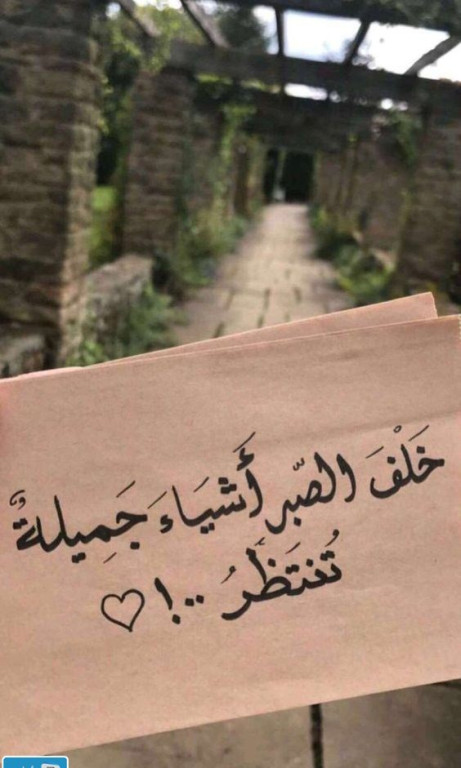 خَلْفَ الصّبر أَشيَاءَ جَمِيلةٌ
تُنتَظَرُ ..! ♡